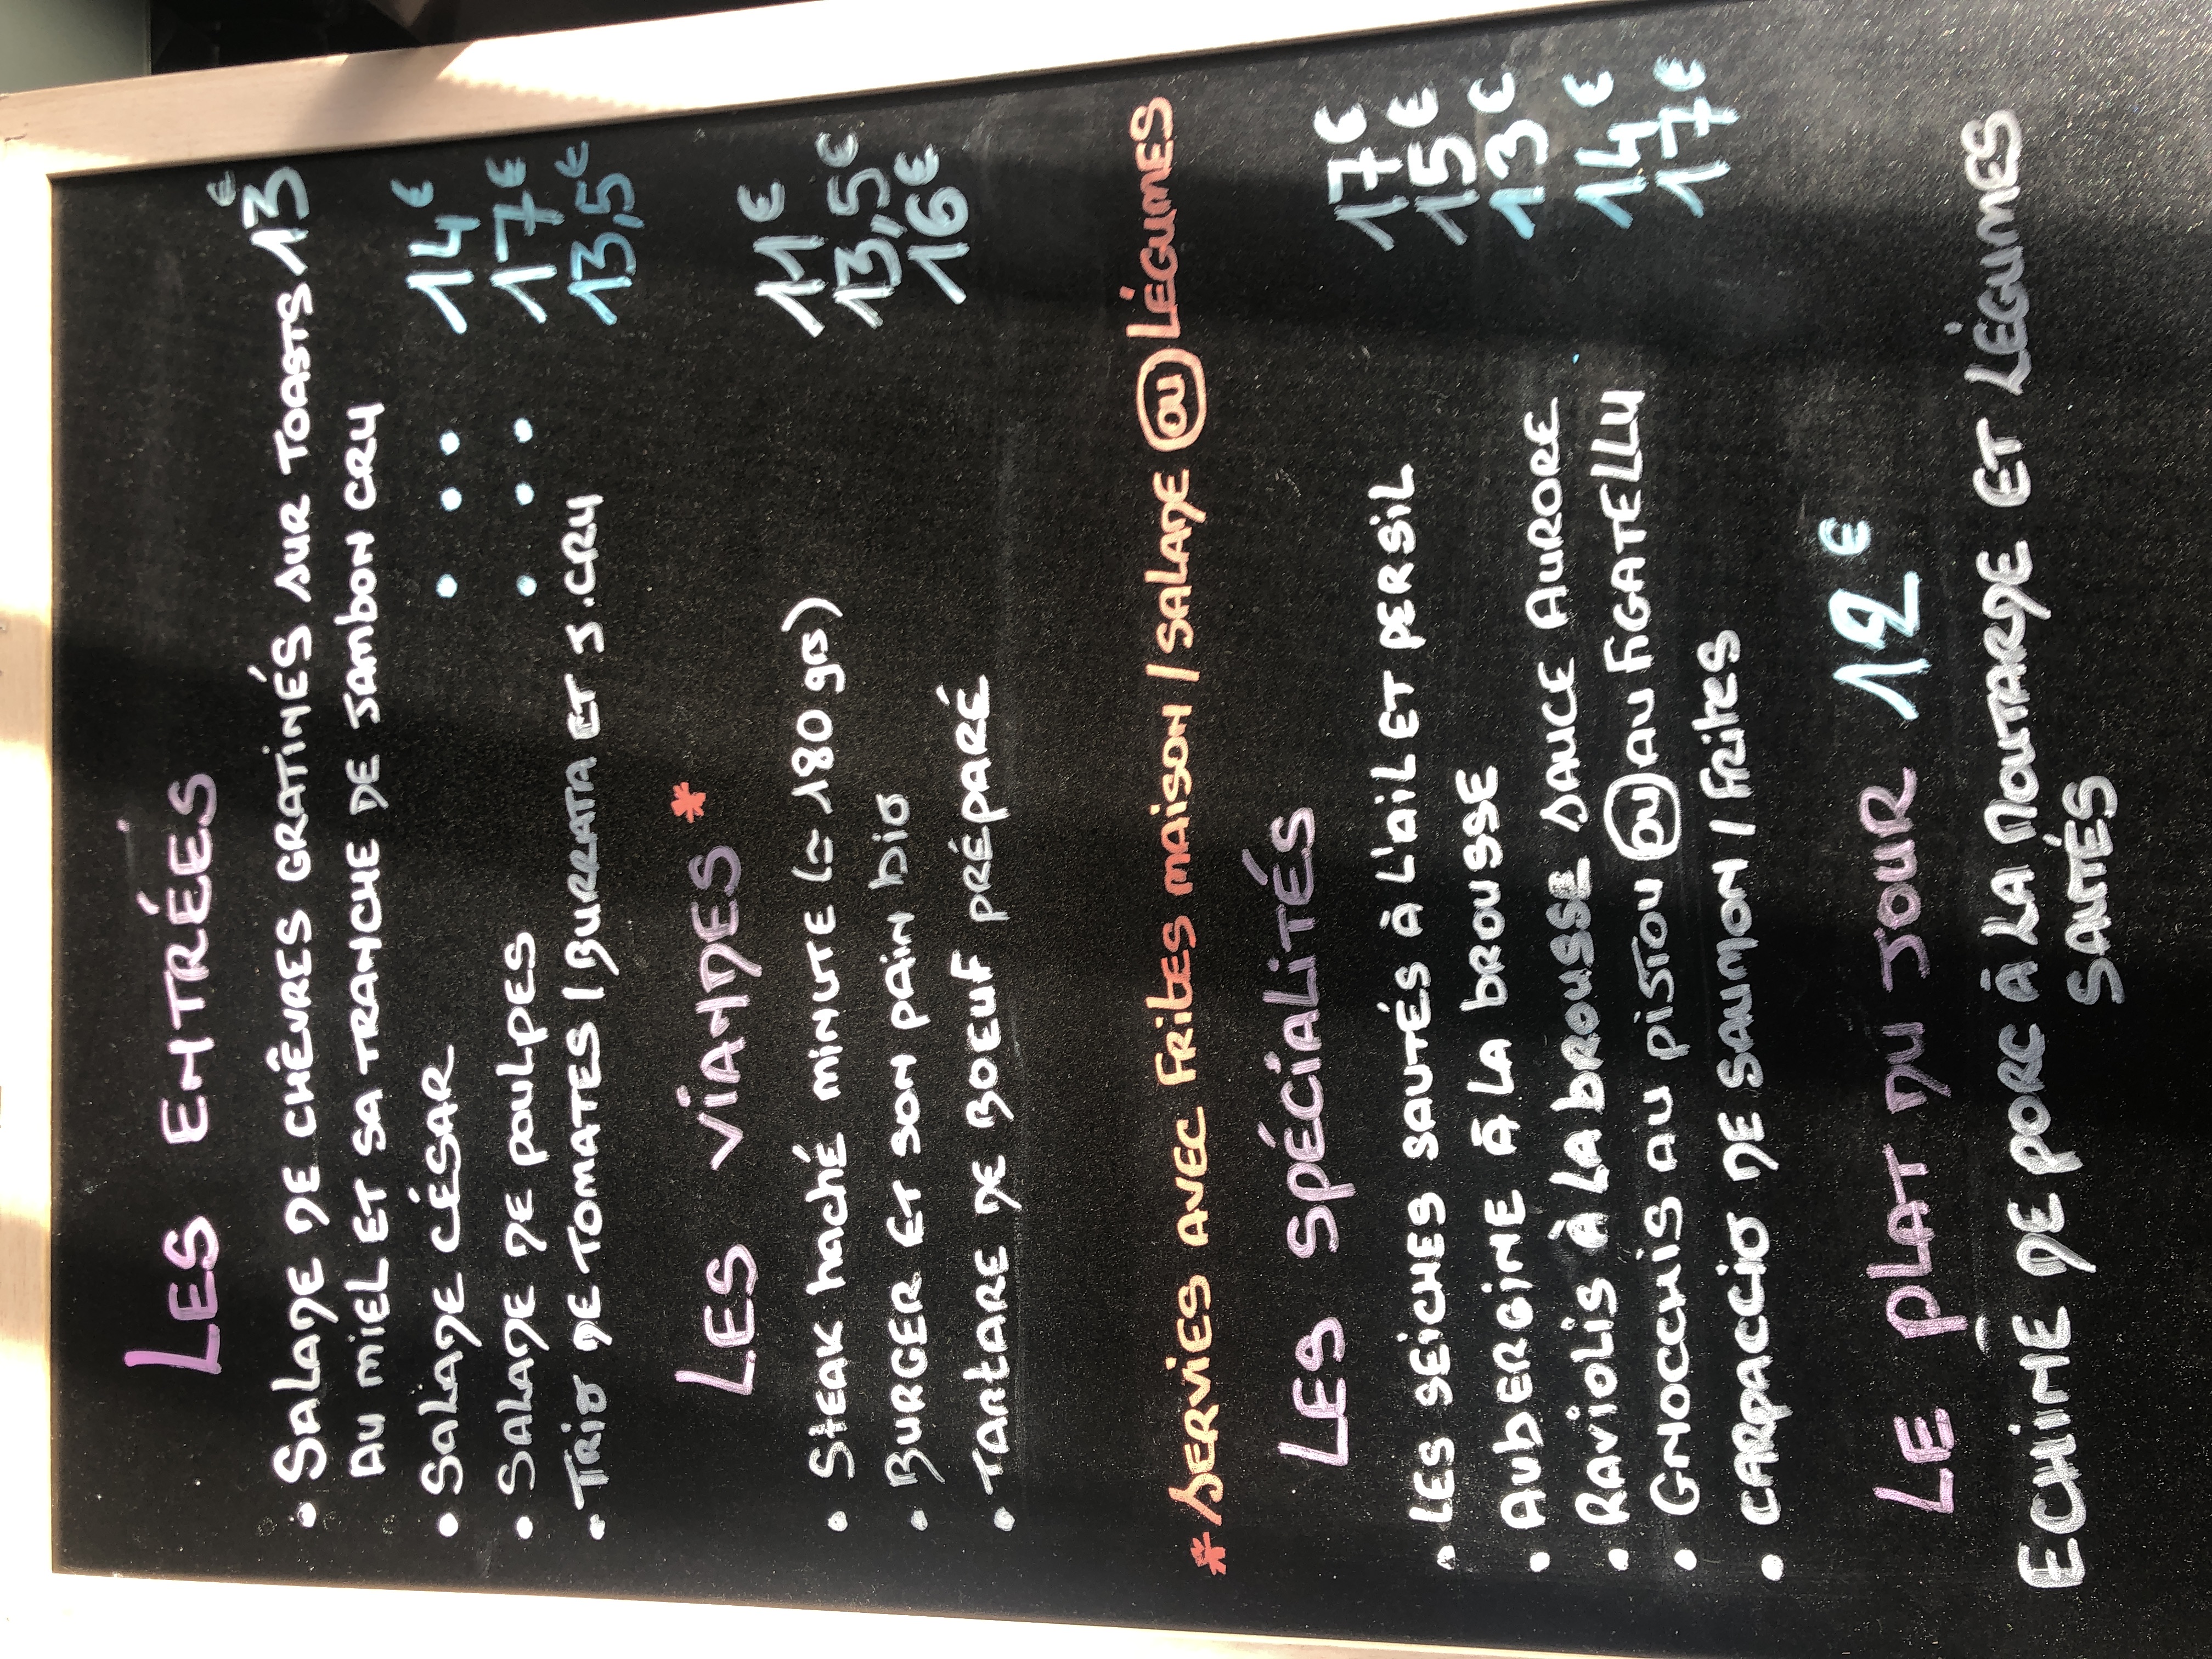 LES ENTRÉES
• SALADE DE CHÊVRES GRATINÉS SUR TOASTS 13€
AU MIEL ET SA TRANCHE DE JAMBON CRU
• SALADE CÉSAR • • • 14€
• SALADE DE POULPES • • • 17€
• TRIO DE TOMATES / BURRATA ET J.CRU 13,5€
LES VIANDES *
• STEAK haché MINUTE (≃ 180 grs) 11€
• BURGER ET SON PAIN bio 13,5€
• TARTARE DE BOEUF PRÉPARÉ 16€
* SERVIES AVEC FRITES MAISON / SALADE OU LÉGUMES
LES SPÉCIALITÉS
• LES SEICHES SAUTÉS À L'AIL ET PERSIL 17€
• AUBERGINE À LA BROUSSE 15€
• RAVIOLIS À LA BROUSSE SAUCE AURORE 13€
• GNOCCHIS AU PISTOU OU AU FIGATELLU 14€
• CARPACCIO DE SAUMON / FRITES 17€
LE PLAT DU JOUR 12€
ECHINE DE PORC À LA MOUTARDE ET LÉGUMES
SAUTÉS